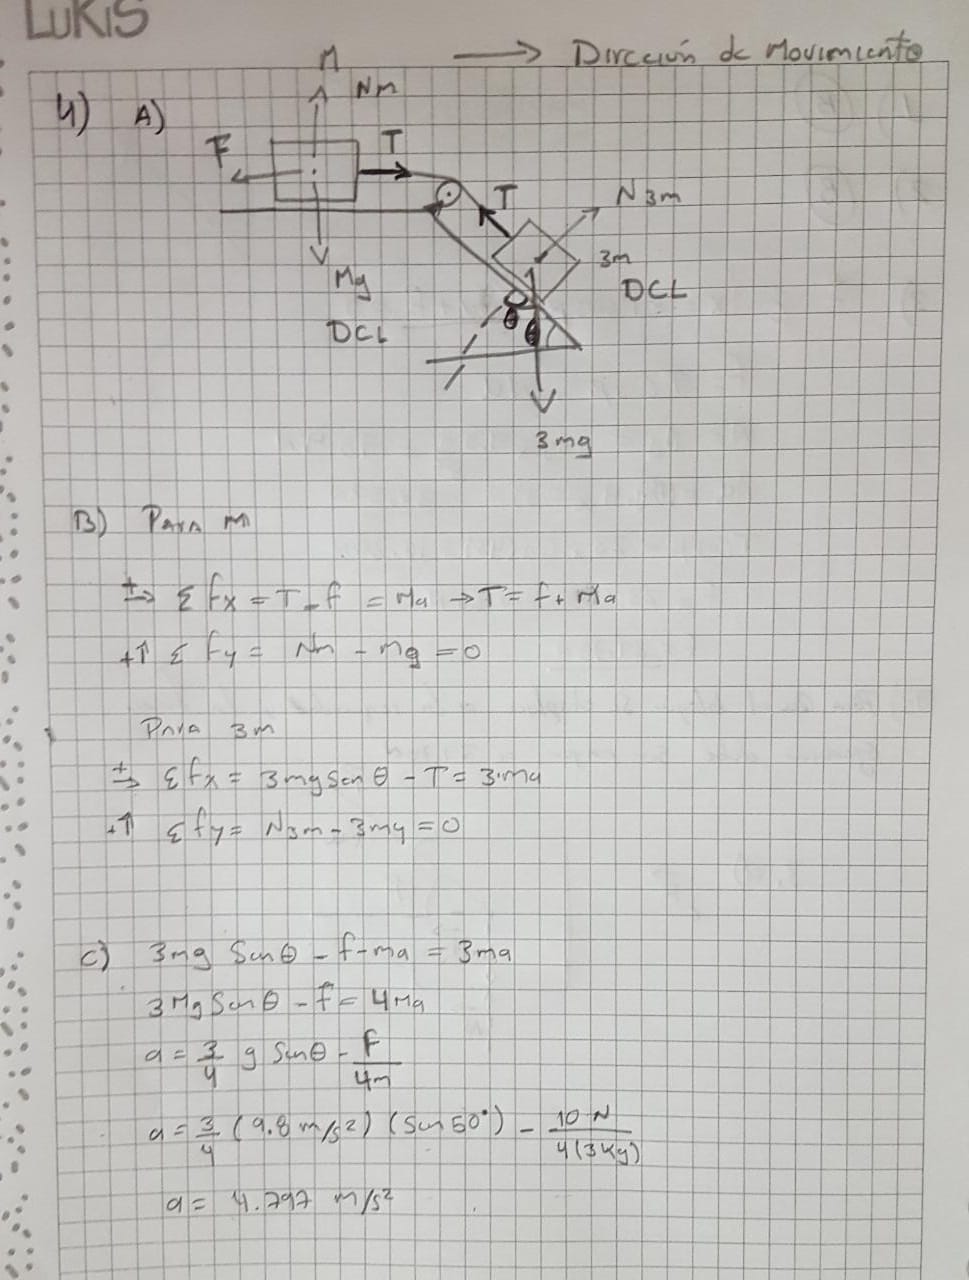 LUKIS
→ Dirección de Movimiento
4) A)
M
Nm
F
T
T
N3m
3m
DCL
Mg
DCL
θ
θ
3mg
B) Para M
±→ Σ fx = T - f = Ma → T = f + Ma
+↑ Σ fy = Nm - mg = 0
Para 3m
±→ Σfx = 3mg Sen θ - T = 3ma
+↑ Σfy = N3m - 3mg = 0
C) 3mg Sen θ - f - ma = 3ma
3Mg Sen θ - F = 4Ma
a = 3/4 g Sen θ - F/4m
a = 3/4 (9.8 m/s²) (Sen 50°) - 10 N/4(3kg)
a = 4.797 m/s²